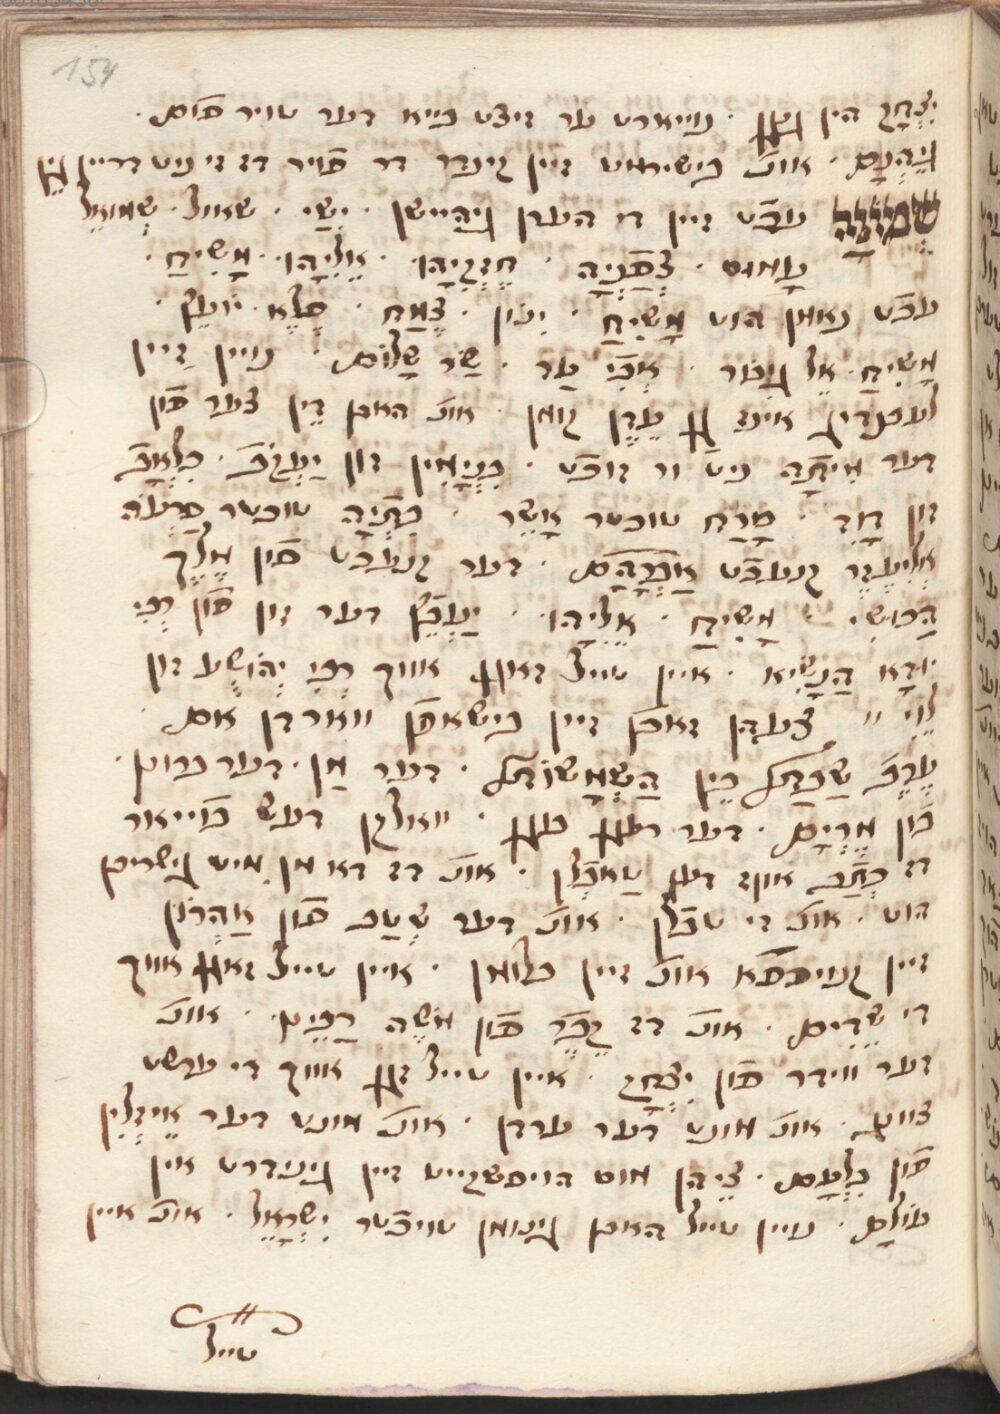 154
יִצְחָק הין גנן · נוייארט ער זיצט בייא דער טויר פֿום ·
גֵיהִנָם · אונ׳ בישירמט זיין קינדר דר פֿויר דז זי ניט דריין
שמונה עבֿט זיין די העכן גיהיישן · יִשַׁי · שאול · שְׁמוּאֵל
עָמוֹס · צְפַנְיָה · חִזְקִיָהוּ · אֵלִיָהוּ · מָשִׁיחַ ·
עכֿט נאמן הוט מָשִׁיחַ · יִנוֹן · צֶמַח · פֶלֶא · יוֹעֵץ ·
מָשִׁיחַ · אֵל גִבוֹר · אֲבִי עַד · שַׂר שָׁלוֹם · נויין זיין
לעבנדיג אינז גן עֵדֶן קומן · אונ׳ האבן דֵין צער פֿון
דער מִיתָה ניט ור זוכֿט · בִנְיָמִין זון יַעֲקֹב · כִלְאָב
זון דָוִד · סֶרַח טוכטר אָשֵׁר · בִתְיָה טוכטר פַּרְעֹה
אֱלִיעֶזֶר קנעכֿט אַבְרָהָם · דער קנעכֿט פֿון מֶלֶךְ
הַכּוּשִׁי · מָשִׁיחַ · אֵלִיָהוּ · יַעְבֵּץ דער זון פֿון רְבִּי
יוּדָא הַנָשִׂיא · איין טייל זאגן אויך רְבִּי יְהוֹשֻׁעַ זון
לֵוִי ״ צעהן זאכן זיין בישאפֿן ווארדן אם ·
עֶרֶב שַׁבָּת בֵין הַשְׁמָשׁוֹת · דער מַן · דער ברום ·
פֿון מִרְיָם · דער רעגן בוגן · וואולקן דעש פֿוייאור
דז כְּתַב אונז דען טַאפֿלן · אונ׳ דז דא מן מיט גישריבן
הוט · אונ׳ די טפֿלן · אונ׳ דער שְׁטַב פֿון אַהֲרֹן
זיין קנויספפא אונ׳ זיין בלומן · איין טייל זאגן אויך
די שֵׁדִים · אונ׳ דז קֶבֶר פֿון מֹשֶׁה רַבֵּינוּ · אונ׳
דער ווידר פֿון יִצְחָק · איין טייל זגן אויך די ערשט
צוונג · אונ׳ מונט דער ערדן · אונ׳ מונט דער אֵיזְלִין
פֿון בִּלְעָם · צֵיהן מוט הויסשקייט זיין גינידרט אין
עוֹלָם · נויין טייל האבן גינומן טויכֿטר יִשְׂרָאֵל · אונ׳ איין
טייל